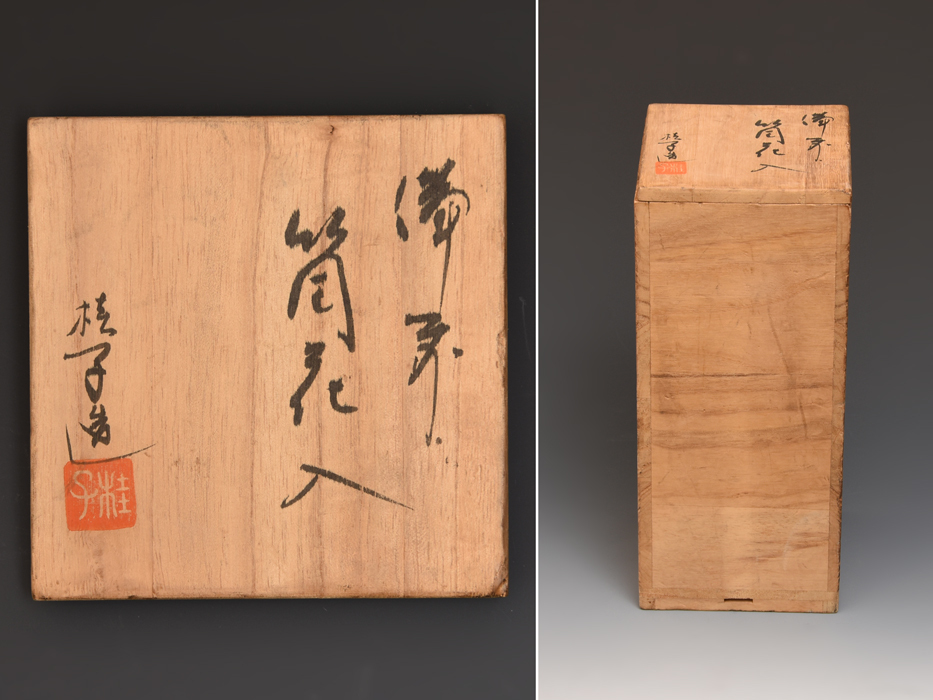 備前
筒花入
桂子造
桂子
備前
筒花入
桂子造
桂子